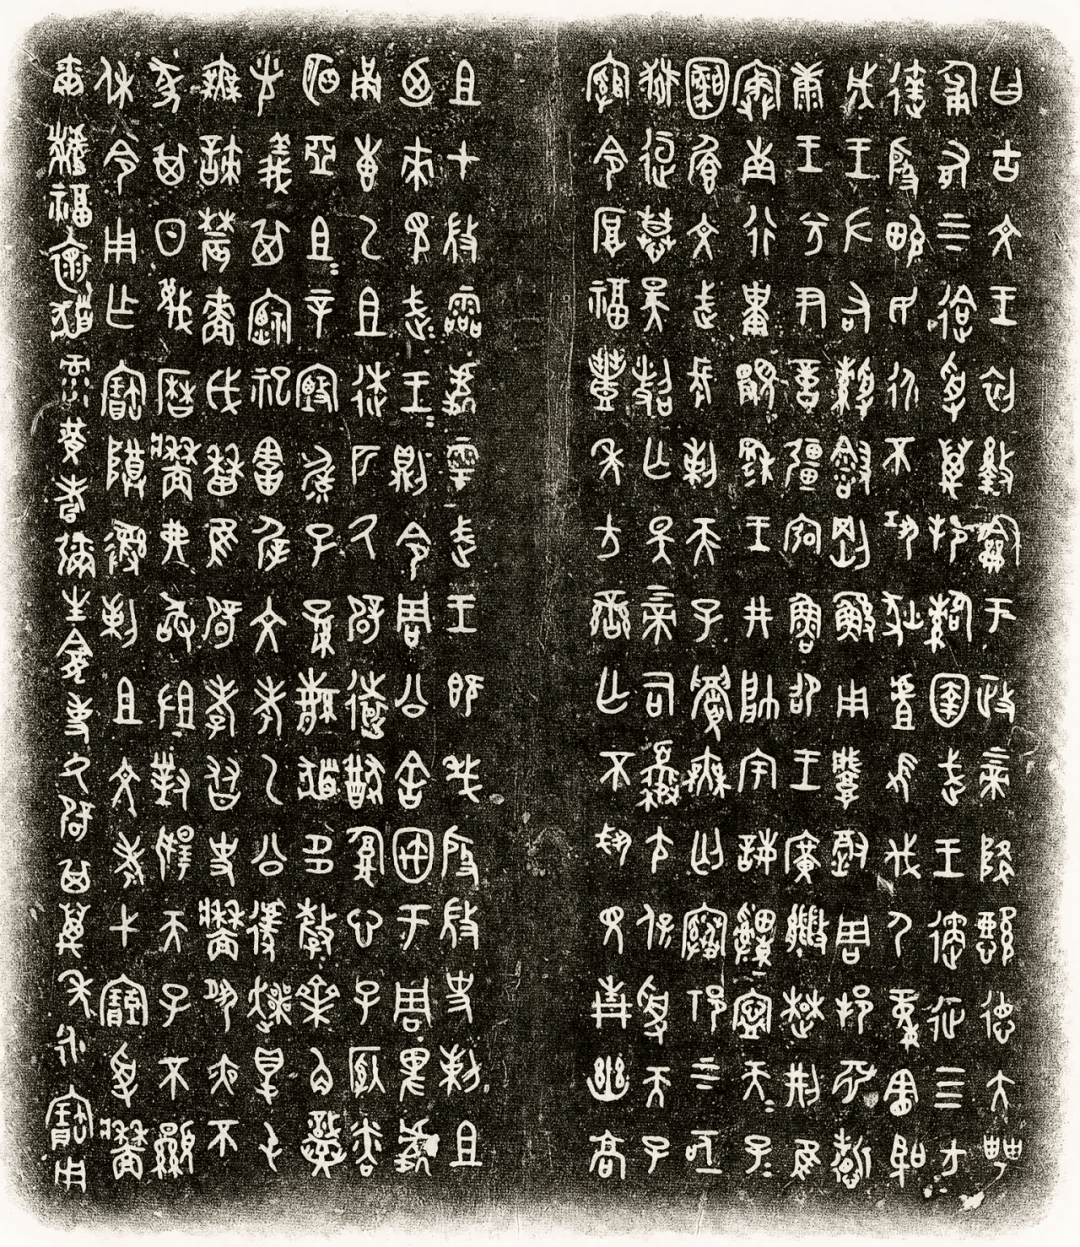 曰古文王初盭龢于政上帝降懿德大甹
匍有上下迨受萬邦䋣圉武王遹征四方
達殷畯民永不巩狄虘髟伐尸童憲聖
成王左右綬剛鯀用肇徹周邦淵哲
康王兮尹億疆弘魯卲王廣能楚荊隹
狩南行祗顯穆王井帥宇誨申寧天子天子
圉纘文武長剌天子眉無匄寋祁上下亟
獄逗慕昊照亡斁上帝司夒尢保受天子
綰令厚福豐年方蠻亡不踝見青幽高
且在微霝處雩武王既殷微史剌且
迺來見武王武王則令周公舍宇于周卑處甬
叀乙且逨匹氒辟遠猷腹心子納粦
明亞且且辛甄毓子孫繁祓多釐齊角熾
光義其禋祀害犀文考乙公遽爽得
屯無諫農穡戉曆隹辟孝友史牆夙夜不
墜其日蔑曆牆弗敢沮對揚天子丕顯
休令用乍寶尊彝剌且文考弋貯受
牆爾福懷髮祿黃耇彌生龕事氒辟其萬年永寶用